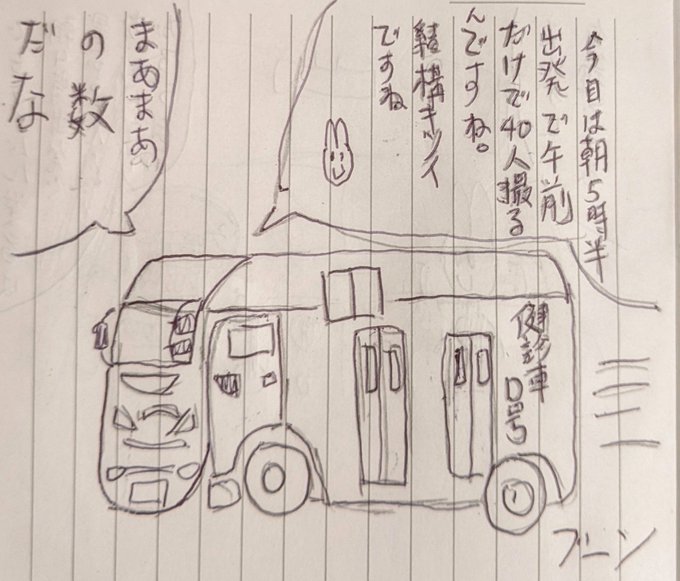 今日は朝5時半
出発で午前
だけで40人撮る
んですね。
結構キツイ
ですね
まあまあ
の数
だな
健診車
D号
ブーン